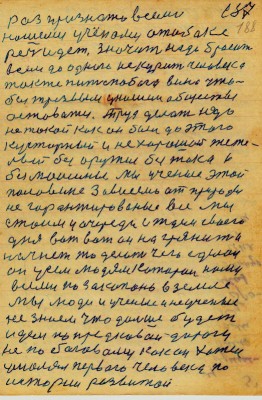 187
188
раз признато всеми
нашими учёными о табаке
речь идет, значит надо бросать
всем до одного не курит человека
также пить любого вина что-
бы трезвым у нашем обществе
оставатся. Труд делать надо
не такой как он был до этого
культурный и не хороший желе-
без оружия без тока и
без машины мы ученые этой
половине Зависимо от природы
не гарантированые все мы
стоим у очереди и ждем своего
дня вот вот он нагрянит и
начнет то делать чего сделал
он усем людям которые нами
всеми по закопано в земле
Мы люди и ученые и неученые
не знаем что дальше будет
идем по предковой дороге
не по Богову как он хотел
первого человека по
истории развитой